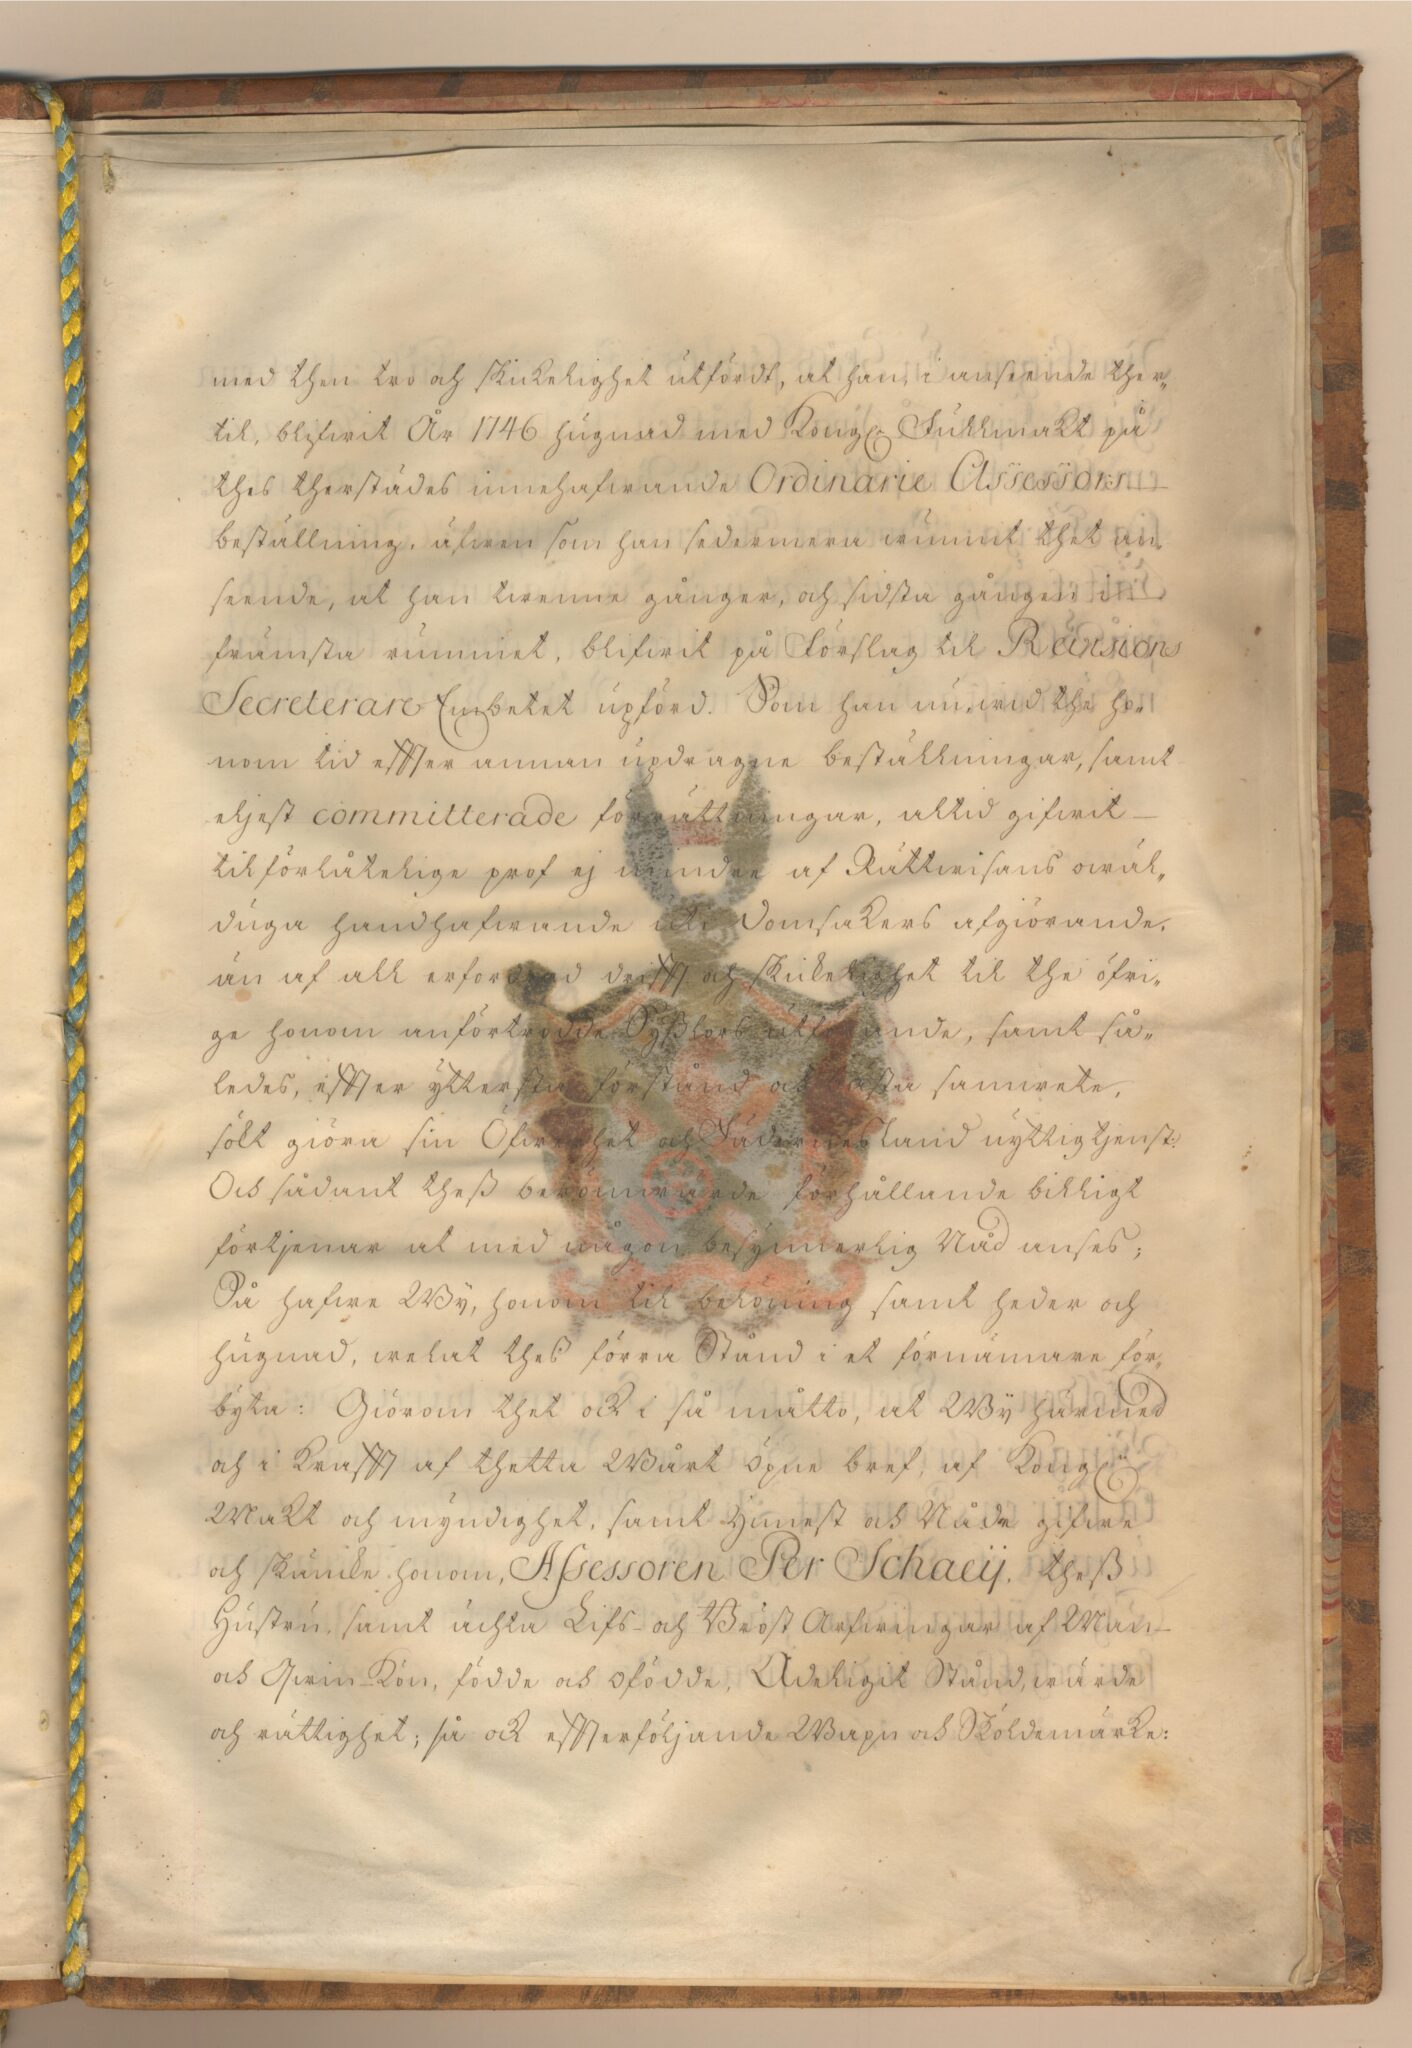 med then tro och skickelighet utfördt, at han, i anseende ther„
til, blifwit År 1746 hugnad med Kongl. Fullmakt på
thes therstädes innehafwande Ordinarie Assessors
beställning, äfwen som han sedermera wunnit thet an„
seende, at han twenne gånger, och sidsta gången i
främsta rummet, blifwit på Förslag til Revisions
Secreterare Embetet upförd. Som han nu, wid the ho„
nom tid effter annan updragne beställningar, samt
eljest committerade förrättningar, altid gifwit
tilförlåtelige prof ej mindre af Rättwisans owäl„
duga handhafwande i domsakers afgiörande,
än af all erfordrad drifft och skickelighet til the öfri„
ge honom anförtrodde Sysslors utförande, samt så„
ledes, effter yttersta förstånd och bästa samwete,
sökt giöra sin Öfwerhet och Fäderneslandnyttig tjenst:
Och sådant theß berömwärde förhållande billigt
förtjenar at med någon besynnerlig Nåd anses;
Så hafwe Wy, honom til belöning samt heder och
hugnad, welat thes förra Stånd i et förnämare för„
byta: Giörom thet ock i så måtto, at Wy härmed
och i Krafft af thetta Wårt öpne bref, af Kongl.
Makt och myndighet, samt Gunest och Nåde gifwe
och skänke honom, Assessoren Per Schaeij, theß
Hustru, samt ächta Lifs- och Bröst Arfwingar af Man-
och Qwin-Kön, födde och ofödde, Adeligit Stånd, wärde
och rättighet; så ock effterföljande Wapn och Sköldemärke: